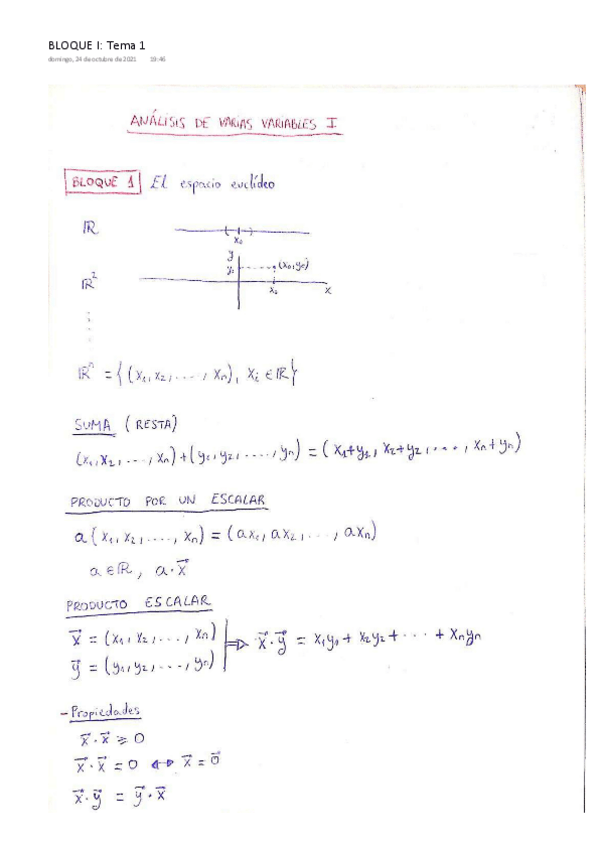 BLOQUE I: Tema 1
domingo, 24 de octubre de 2021 19:46
ANÁLISIS DE VARIAS VARIABLES I
BLOQUE 1 El espacio euclídeo
ℝ
x₀
y
ℝ² y₀ (x₀,y₀)
x₀ x
ℝⁿ = {(x₁, x₂, ..., xₙ), xᵢ ∈ ℝ}
SUMA (RESTA)
(x₁, x₂, ..., xₙ) + (y₁, y₂, ..., yₙ) = (x₁+y₁, x₂+y₂, ..., xₙ+yₙ)
PRODUCTO POR UN ESCALAR
a(x₁, x₂, ..., xₙ) = (ax₁, ax₂, ..., axₙ)
a ∈ ℝ, a·x⃗
PRODUCTO ESCALAR
x⃗ = (x₁, x₂, ..., xₙ)
y⃗ = (y₁, y₂, ..., yₙ) ⇒ x⃗·y⃗ = x₁y₁ + x₂y₂ + ... + xₙyₙ
- Propiedades
x⃗·x⃗ ≥ 0
x⃗·x⃗ = 0 ↔ x⃗ = 0⃗
x⃗·y⃗ = y⃗·x⃗